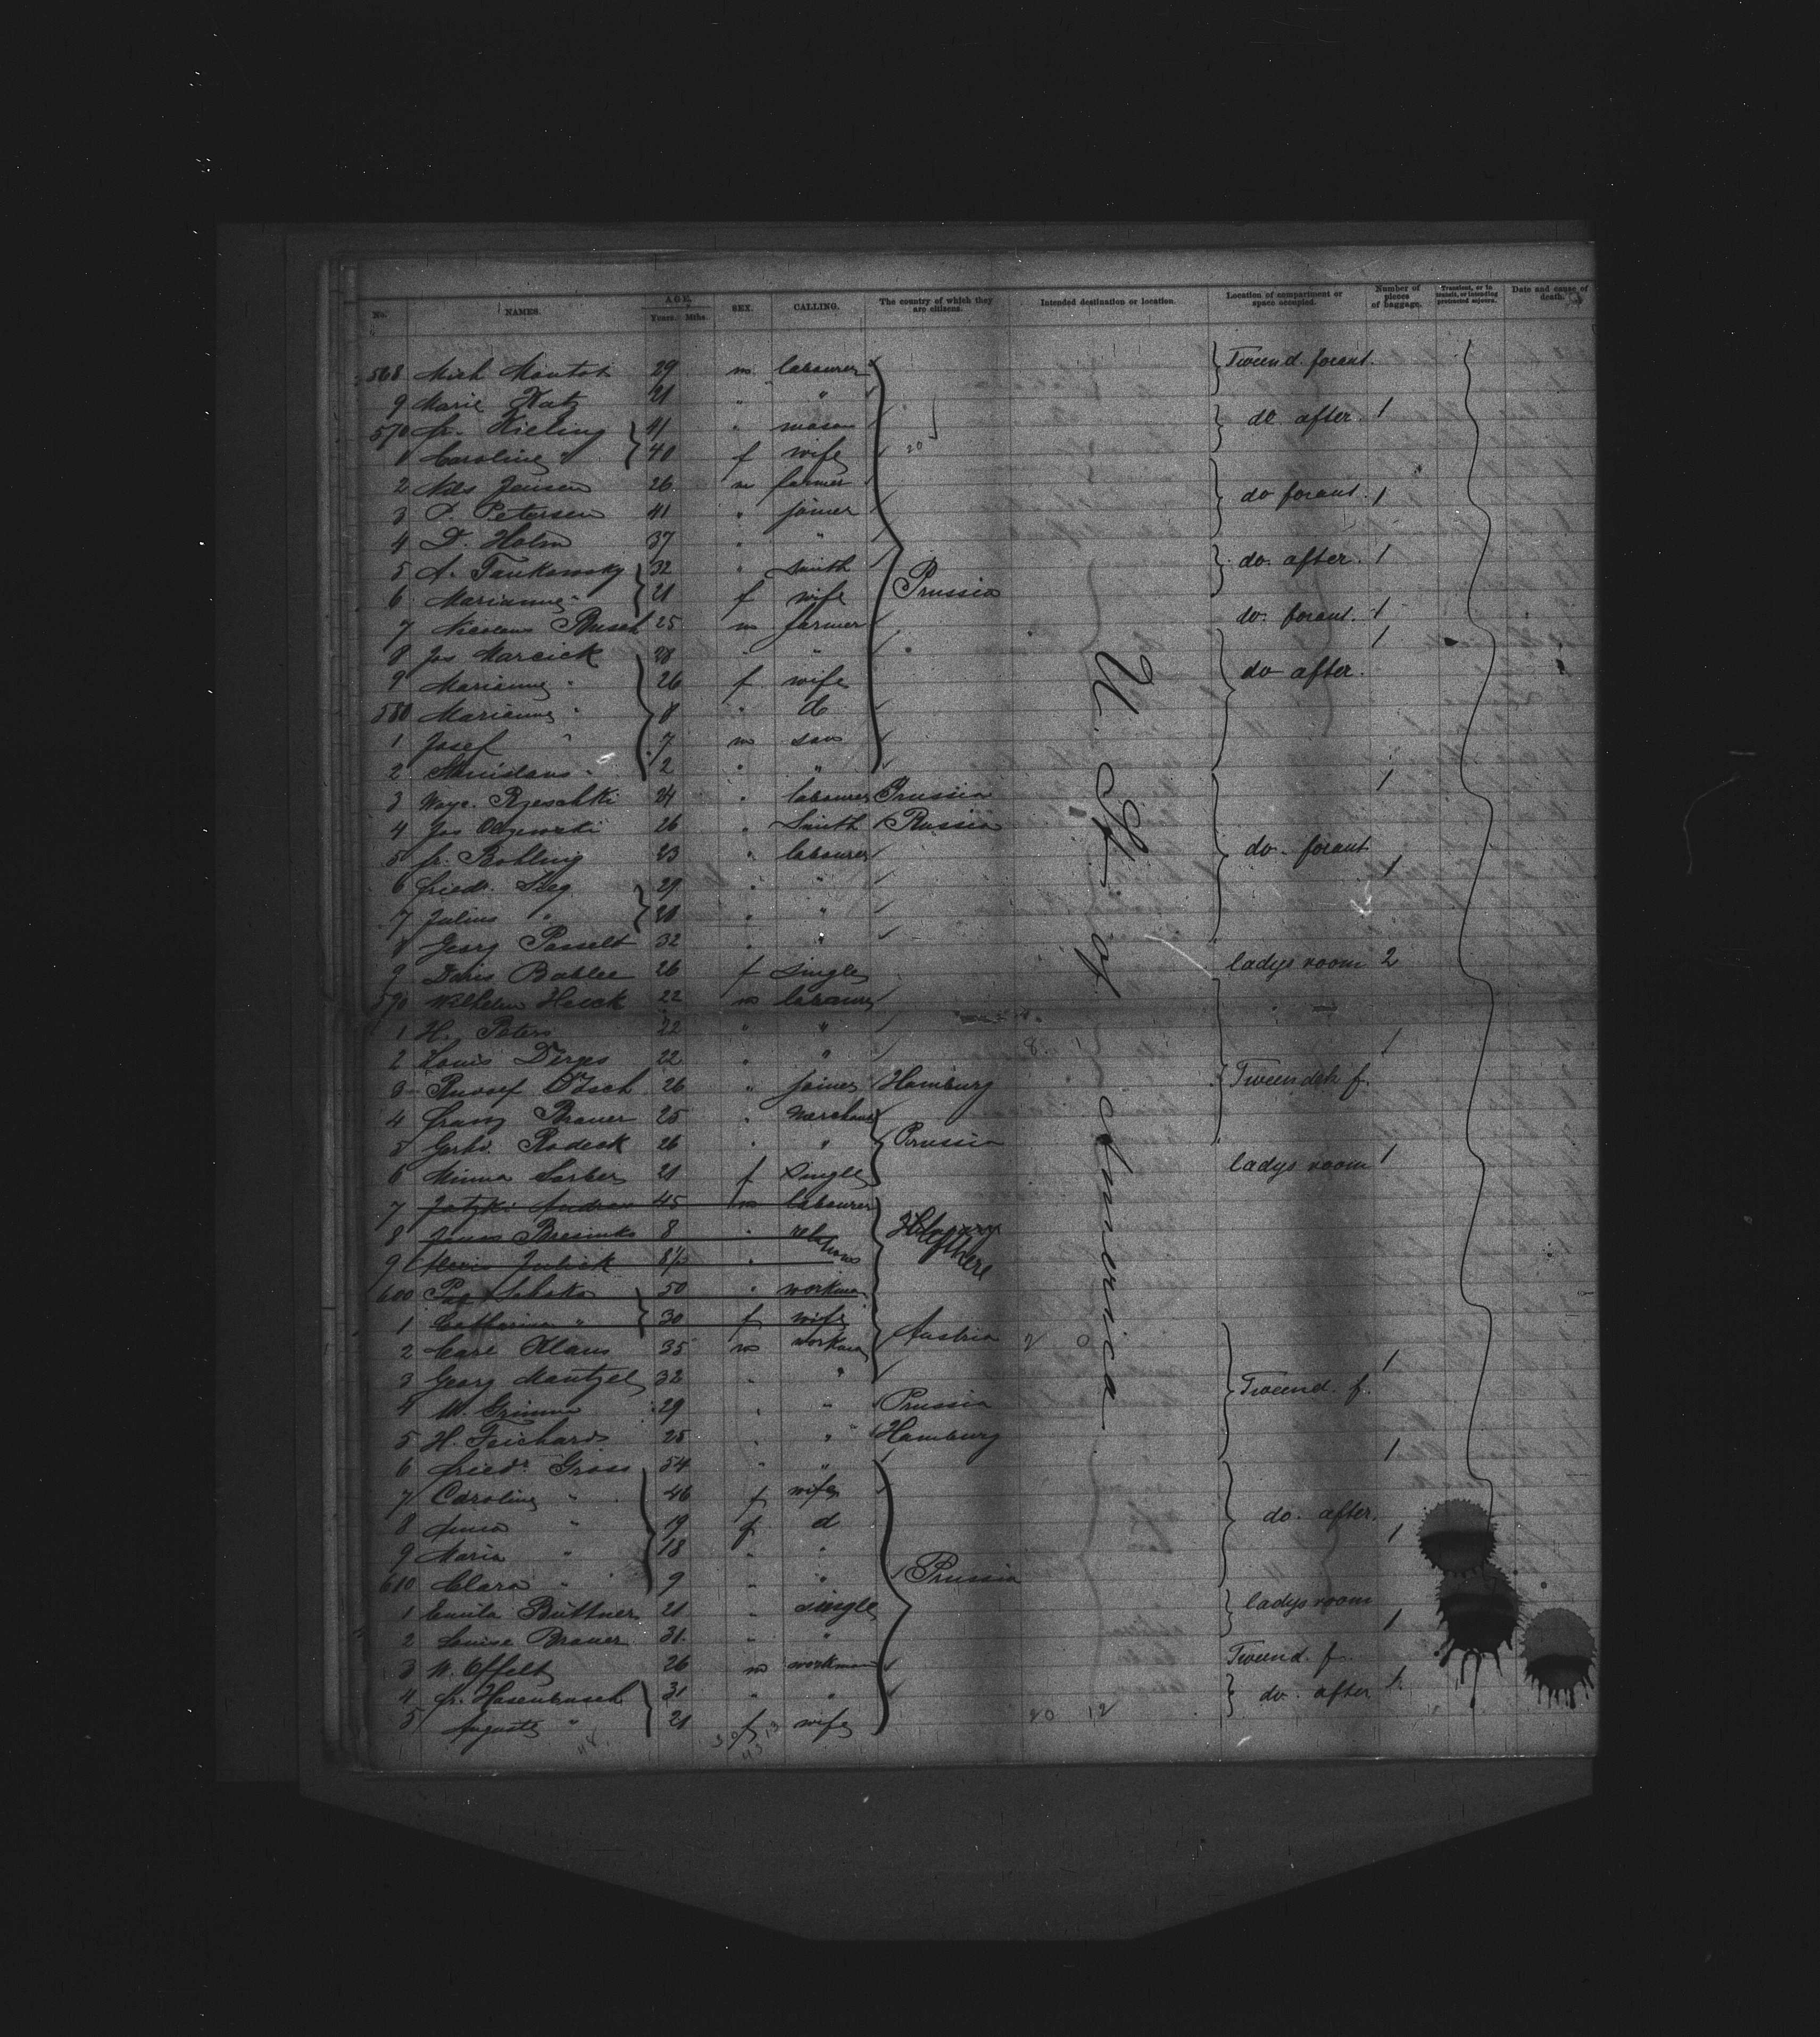 No. NAMES. AGE. Years. Mths. SEX. CALLING. The country of which they are citizens. Intended destination or location. Location of compartment or space occupied. Number of pieces of baggage. Transient, or in transit, or intending protracted sojourn. Date and cause of death.
568 Mich 29 m labourer Tweend. forant.
9 Marie Katz 21 " "
570 Fr. Kieling 41 " mason do after. 1
1 Caroline " 40 f wife 20
2 Nils Jensen 26 m farmer
3 P. Petersen 41 " joiner do forant. 1
4 D. Holm 37 " "
5 A. Tankowsky 32 " smith do. after. 1
6 Marianne " 21 f wife Prussia
7 Nicolaus Busch 25 m farmer do. forant. 1
8 Jos Marcick 28 " " 1
9 Marianne " 26 f wife do after.
580 Marianne " 8 " do
1 Josef " 7 m son
2 Stanislaus " 2 " "
3 Rzeschki 24 " labourer Prussia 1
4 Jos 26 " Smith Russia
5 Fr. Bohling 23 " labourer do. forant
6 Friedr. Sieg 29 " " 1
7 Julius " 28 " "
8 Georg Posselt 32 " "
9 Doris 26 f Single ladys room 2
590 Wilhelm Haeck 22 m labourer
1 H. Peters 22 " "
2 Louis Derges 22 " " 8. 1 1
3 Rudolf 26 " joiner Hamburg Tweendek f.
4 Franz Brauer 25 " Merchant
5 Gerhd. Radeck 26 " " Prussia
6 Minna 21 f Single ladys room 1
7 Jatzki Andreas 45 m labourer
8 8 " relations
9 Julick 8½ "
600 50 " workman
1 Catharina " 30 f wife
2 Carl Klaus 35 m workman Austria 2 0
3 Georg Mantzel 32 " " 1
4 W. Grimm 29 " " Prussia Tweend. f.
5 H. 25 " " Hamburg
6 Friedr. Gross 54 " " 1
7 Caroline " 46 f wife
8 Anna " 19 f d do. after.
9 Maria " 18 " " 1
610 Clara " 9 " " Prussia
1 Emila Büttner 21 " single ladys room
2 Louise Brauer 31 " " 1
3 W. Offelt 26 m workman Tweend. f.
4 Fr. Hasenbusch 31 " " do. after 1
5 Auguste " 21 f wife 20 12
U. St. of America